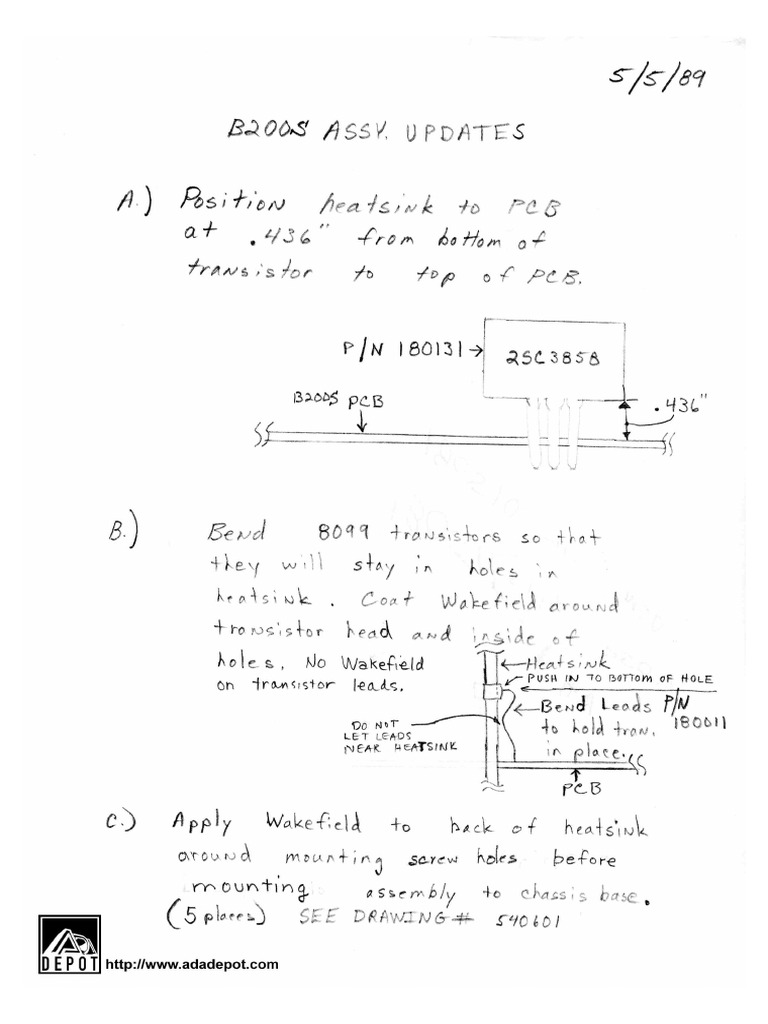 5/5/89
B200S ASSY. UPDATES
A.) Position heatsink to PCB
at .436" from bottom of
transistor to top of PCB.
P/N 180131
2SC3858
B200S PCB
.436"
B.) Bend 8099 transistors so that
they will stay in holes in
heatsink. Coat Wakefield around
transistor head and inside of
holes. No Wakefield
on transistor leads.
Heatsink
PUSH IN TO BOTTOM OF HOLE
Bend Leads P/N
to hold tran. 180011
in place.
DO NOT
LET LEADS
NEAR HEATSINK
PCB
C.) Apply Wakefield to back of heatsink
around mounting screw holes before
mounting assembly to chassis base.
(5 places) SEE DRAWING # 540601
ADA
DEPOT
http://www.adadepot.com